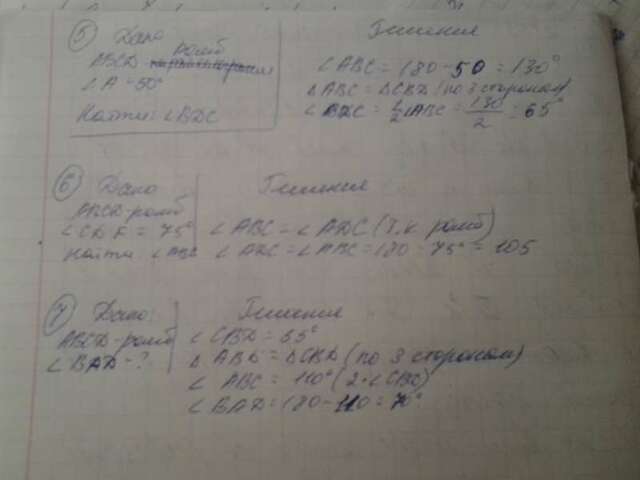 5 Дано
ромб
ABCD параллелограмм
∠A = 50°
Найти: ∠BDC
Решение
∠ABC = 180 - 50 = 130°
△ABC = △CBD (по 3 сторонам)
∠BDC = 1/2 ∠ABC = 130/2 = 65°
6 Дано
ABCD-ромб
∠CDF = 75°
Найти ∠ABC
Решение
∠ABC = ∠ADC (т.к ромб)
∠ADC = ∠ABC = 180 - 75° = 105
7 Дано:
ABCD-ромб
∠BAD - ?
Решение
∠CBD = 55°
△ABD = △CBD (по 3 сторонам)
∠ABC = 110° (2·∠CBD)
∠BAD = 180 - 110 = 70°